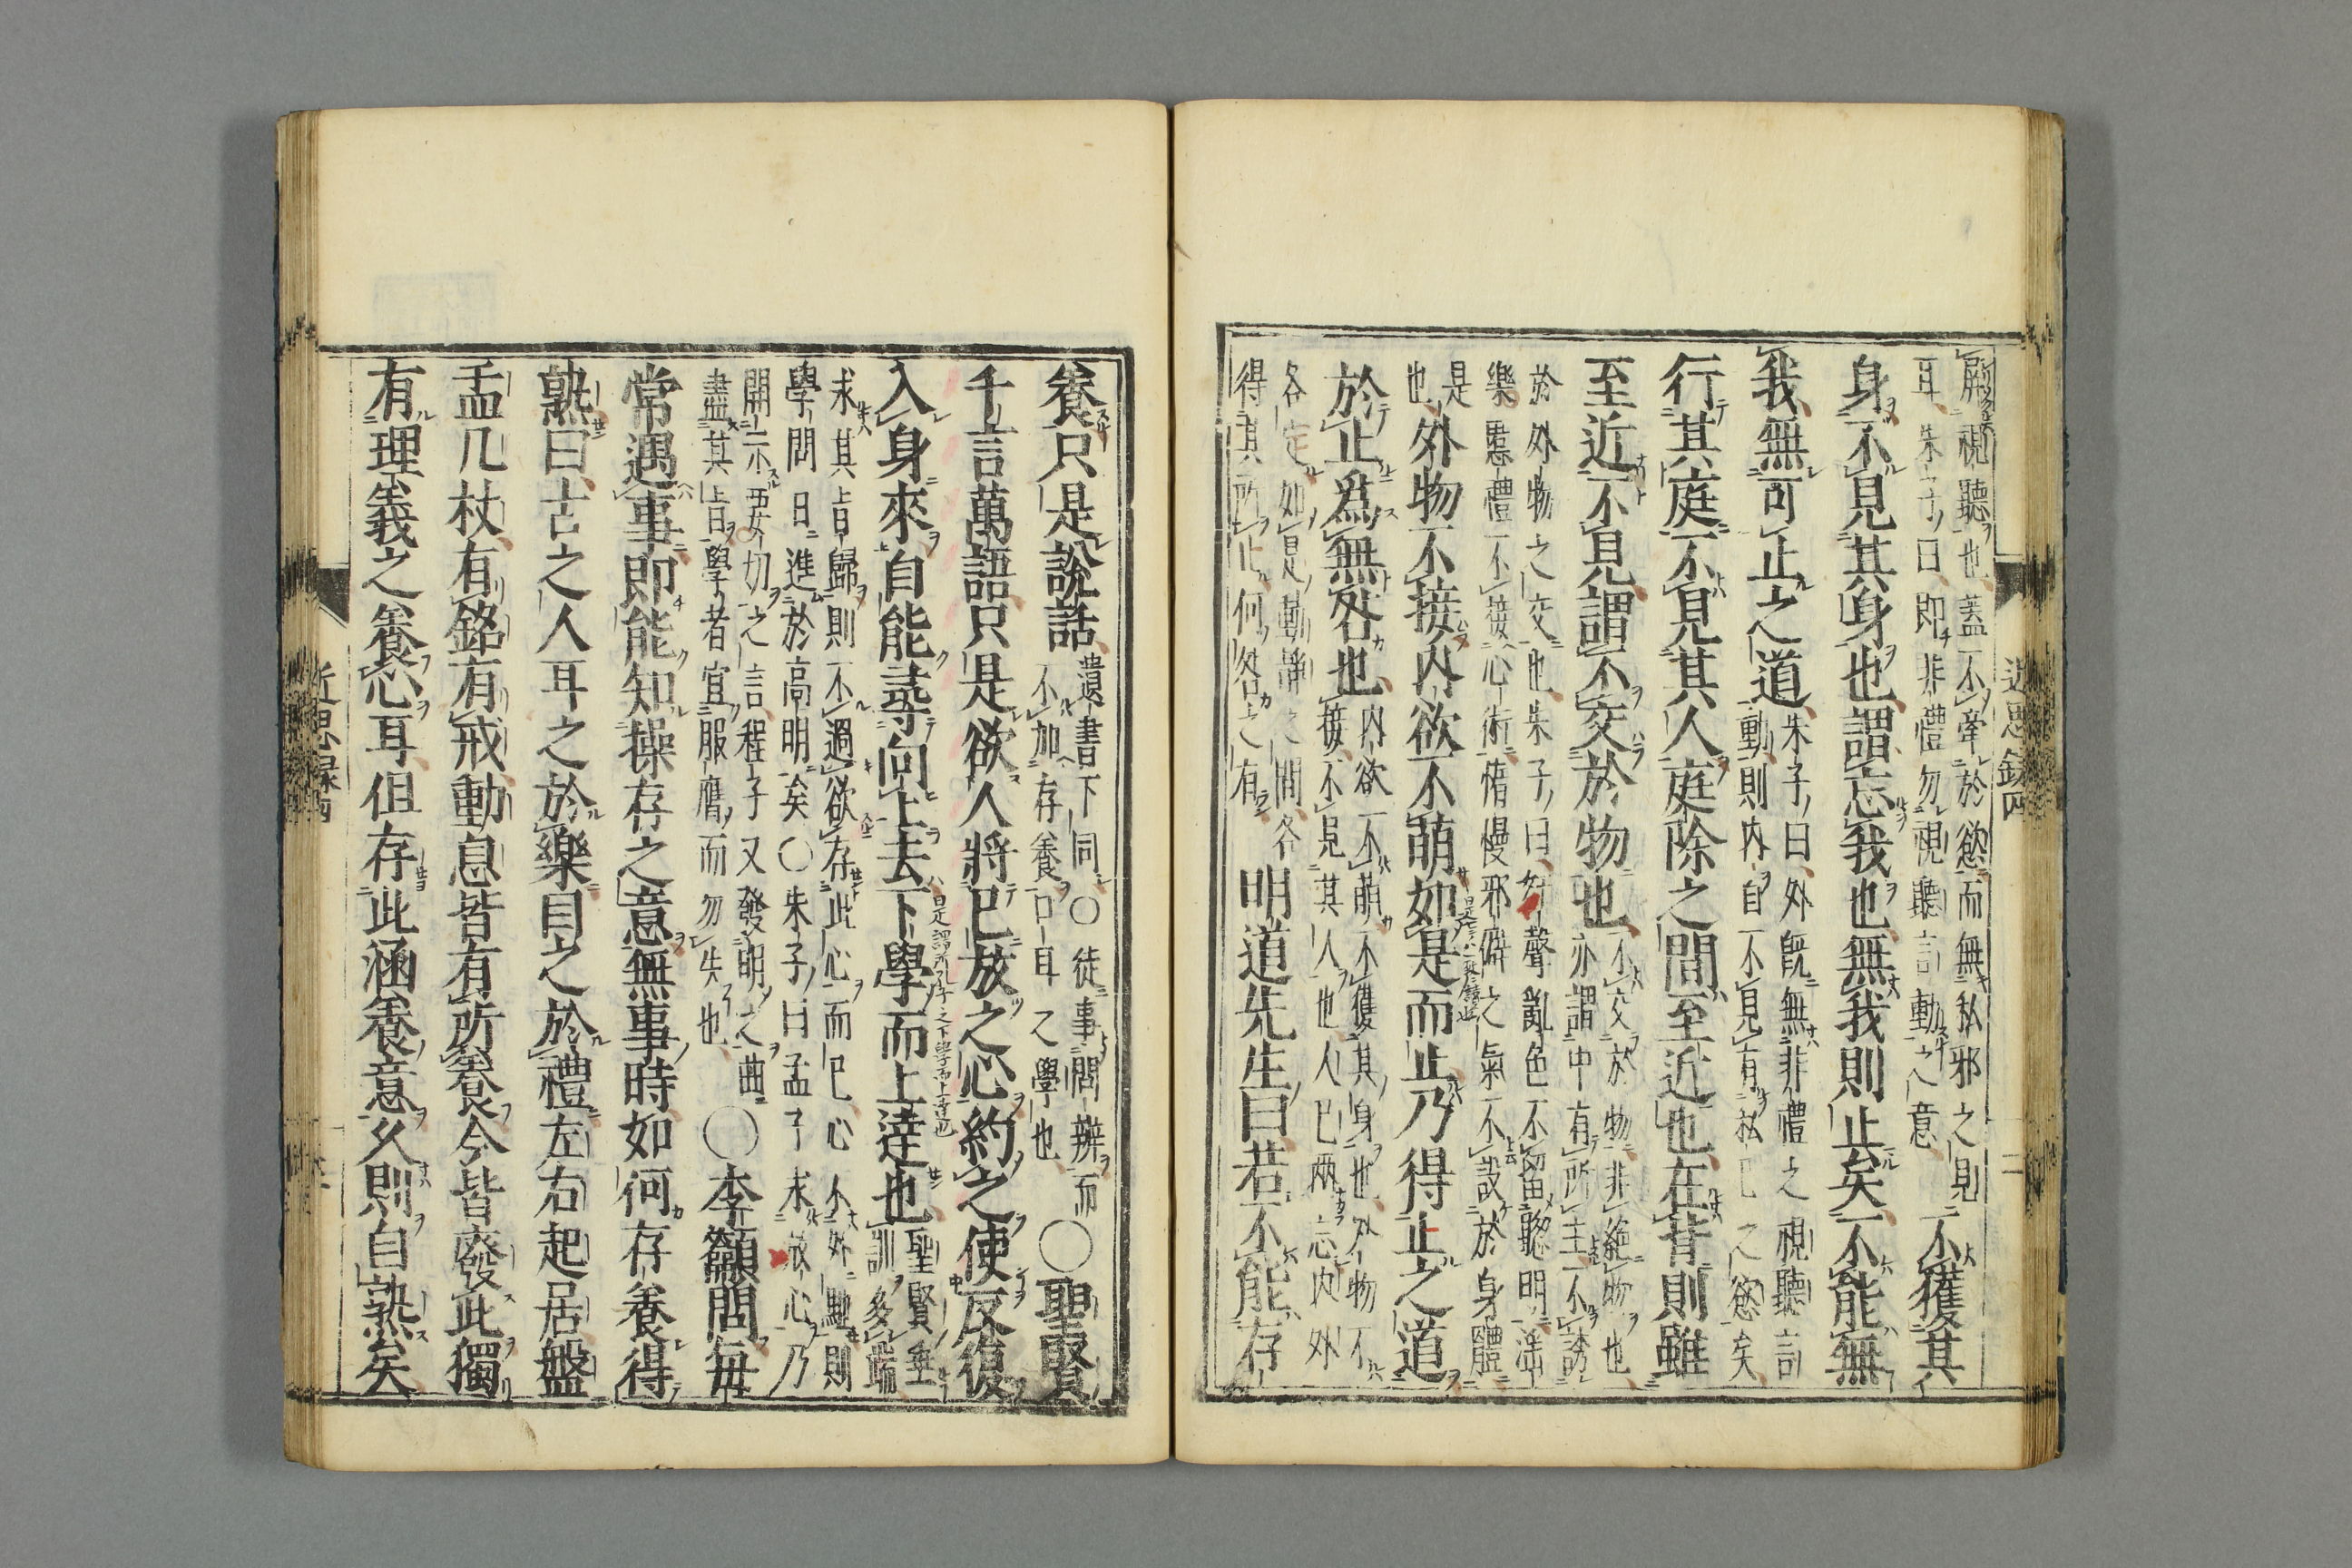 屏視聽也蓋不牽於慾而無私邪之見
耳朱子曰即非禮勿視聽言動之意
不獲其
身不見其身也謂忘我也無我則止矣不能無
我無可止之道
朱子曰外既無非禮之視聽言
動則內自不見有私己之慾矣
行其庭不見其人庭除之間至近也在背則雖
至近不見謂不交於物也
不交於物非絕物也
亦謂中有所主不誘
於外物之交也朱子曰奸聲亂色不留聰明淫
樂慝禮不接心術惰慢邪僻之氣不設於身體
是
也
外物不接內欲不萌如是而止乃得止之道
於止爲無咎也
內欲不萌不獲其身也外物不
接不見其人也人己兩忘內外
各定如是動靜之間各
得其所止何咎之有
明道先生曰若不能存
近思錄四
二
養只是說話
遺書下同○徒事問辨而
不加存養口耳之學也
○聖賢
千言萬語只是欲人將已放之心約之使反復
入身來自能尋向上去下學而上達也
聖賢垂
訓多端
求其旨歸則不過欲存此心而已心不外馳則
學問日進於高明矣○朱子曰孟子求放心乃
開示要切之言程子又發明之曲
盡其旨學者宜服膺而勿失也
○李籲問每
常遇事即能知操存之意無事時如何存養得
熟曰古之人耳之於樂目之於禮左右起居盤
盂几杖有銘有戒動息皆有所養今皆廢此獨
有理義之養心耳但存此涵養意久則自熟矣
近思錄四